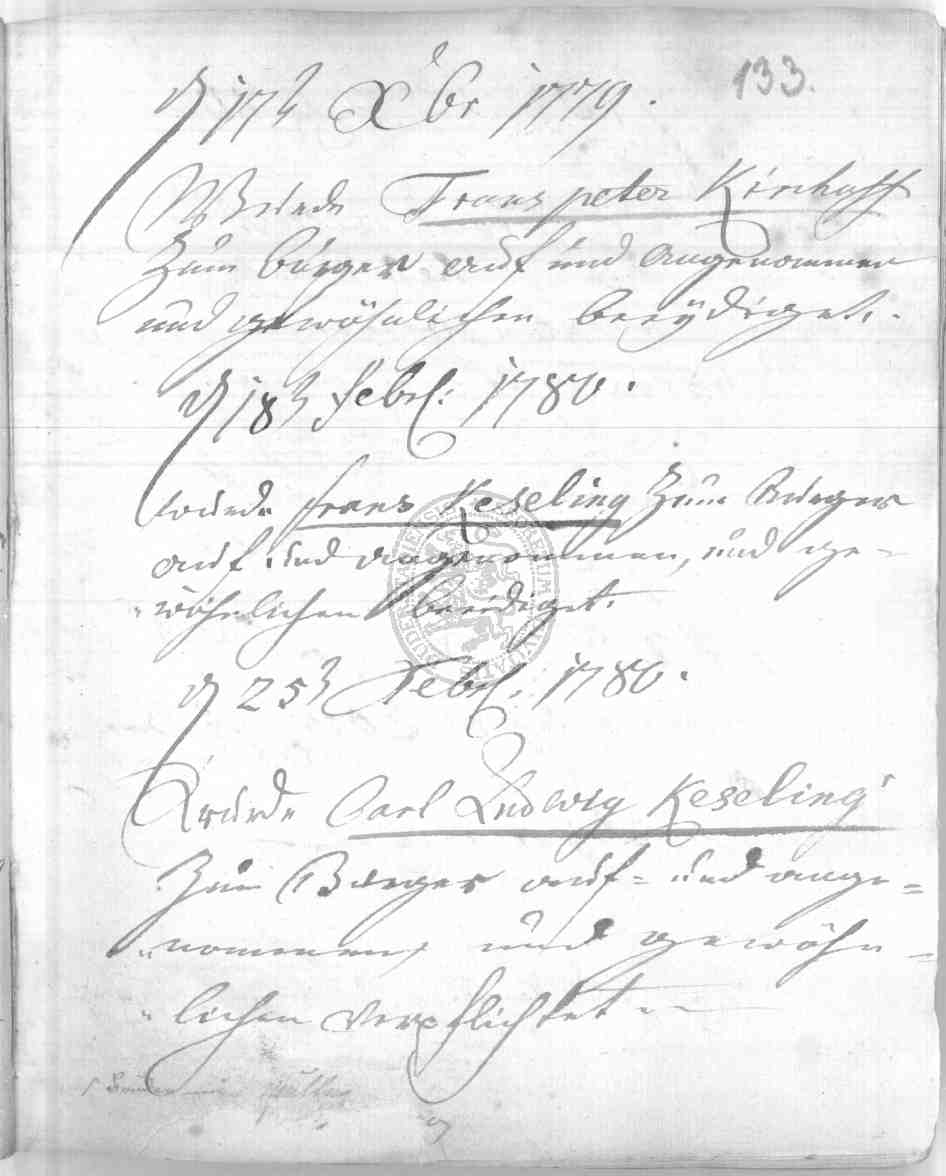 133.
d 17t Xbr 1779.
Wurde Frans peter Kirchhoff
Zum burger auf und Angenommen
und gewöhnlichen beeydiget.
d 18t febrl: 1780.
wurde frans Keseling Zum Burger
auf und angenommen, und ge=
wöhnlichen beeidiget.
d 25t Febrl. 1780.
wurde Carl Ludwig Keseling
Zum Burger auf= und ange=
nommen, und gewöhn=
lichen verpflichtet